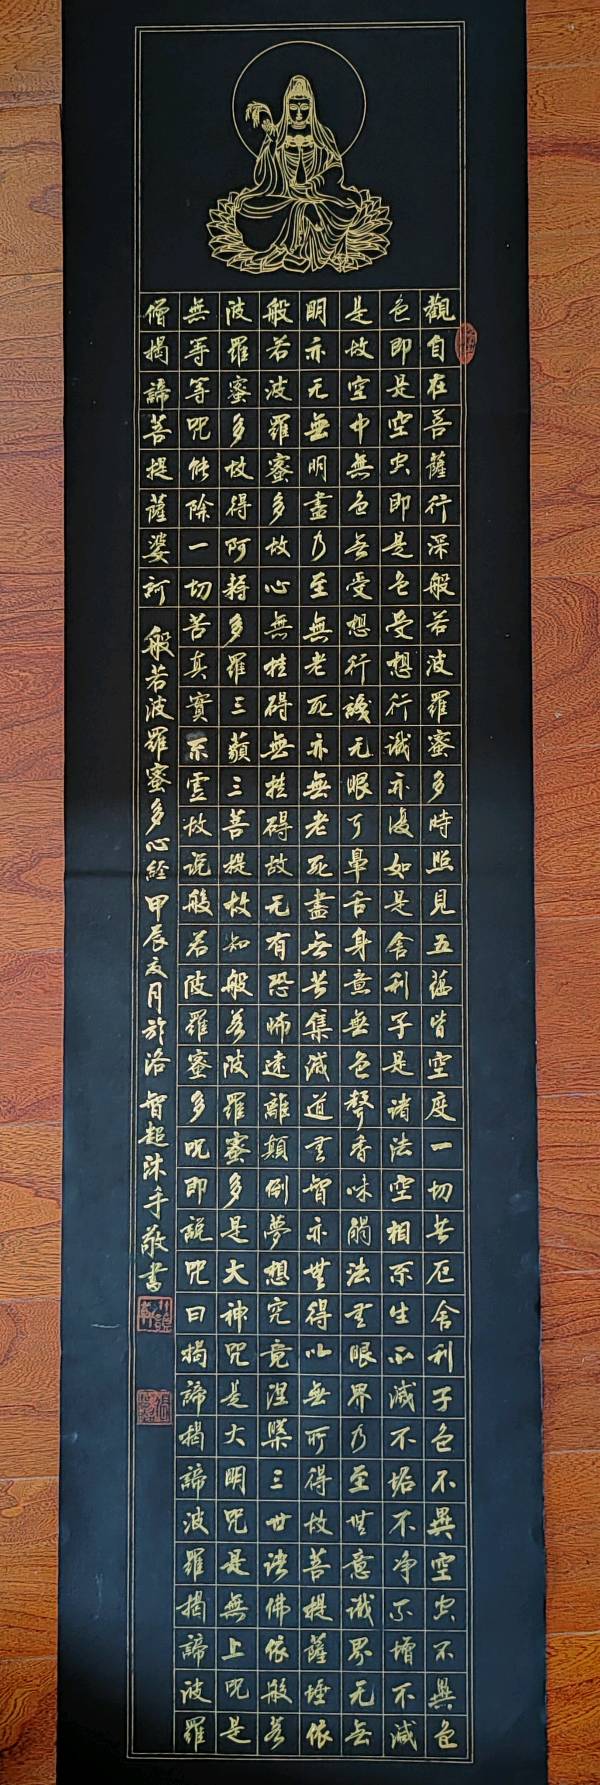 觀自在菩薩行深般若波羅蜜多時照見五蘊皆空度一切苦厄舍利子色不異空空不異色
色即是空空即是色受想行识亦復如是舍利子是諸法空相不生不滅不垢不净不增不減
是故空中無色無受想行識无眼耳鼻舌身意無色聲香味觸法无眼界乃至無意识界无無
明亦无無明盡乃至無老死亦無老死盡無苦集滅道无智亦無得以無所得故菩提薩埵依
般若波羅蜜多故心無挂碍無挂碍故无有恐怖遠離顛倒夢想究竟涅槃三世诸佛依般若
波羅蜜多故得阿耨多羅三藐三菩提故知般若波羅蜜多是大神咒是大明咒是無上咒是
無等等咒能除一切苦真實不虛故说般若波羅蜜多咒即說咒曰揭諦揭諦波羅揭諦波羅
僧揭諦菩提薩婆訶 般若波羅蜜多心經 甲辰夏月於洛 智超沐手敬書